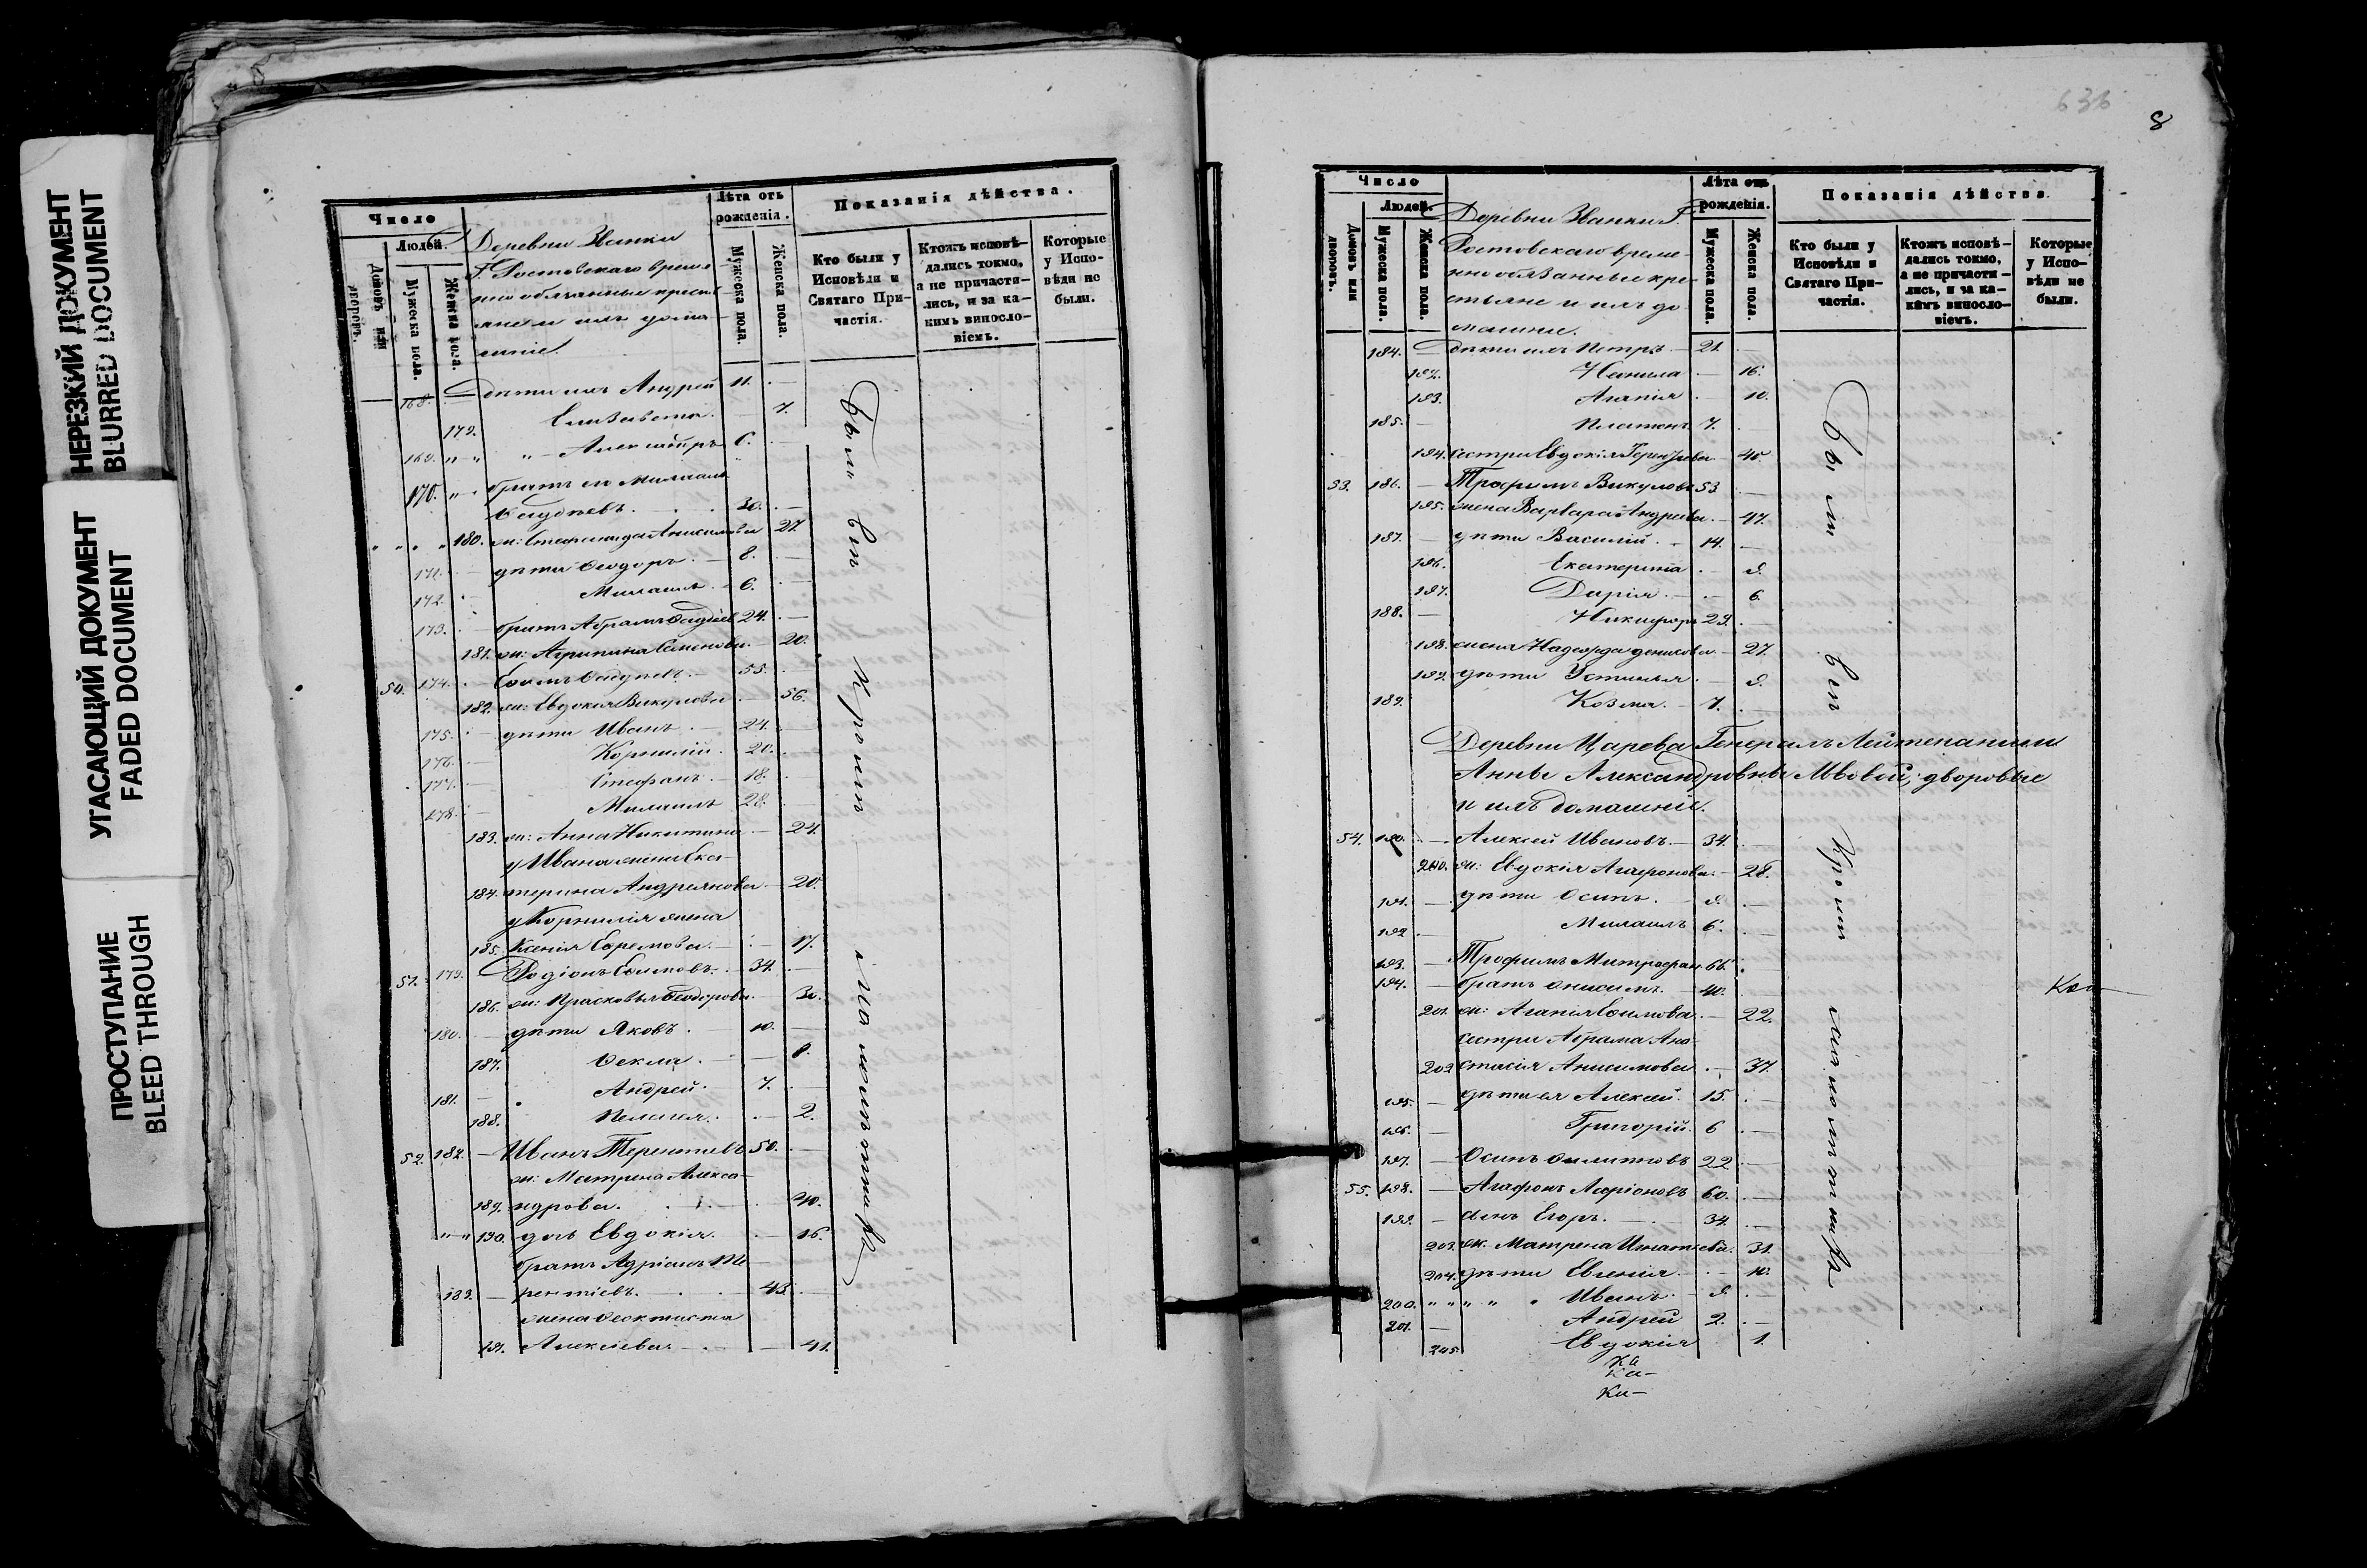 НЕРЕЗКИЙ ДОКУМЕНТ
BLURRED DOCUMENT
УГАСАЮЩИЙ ДОКУМЕНТ
FADED DOCUMENT
ПРОСТУПАНИЕ
BLEED THROUGH
Число
Людей.
Домовъ или дворовъ.
Мужеска пола.
Женска пола.
Деревни Званки
Г. Ростовскаго време
нно обязанные крестья
не и ихъ дома
шніе.
Лѣта отъ рожденія.
Мужеска пола.
Женска пола.
Показанія дѣйства.
Кто были у Исповѣди и Святаго Причастія.
Ктожъ исповѣдались токмо, а не причастились, и за какимъ винословіемъ.
Которые у Исповѣди не были.
168. дѣти ихъ Андрей 11.
179. Елизавета 7.
169. Александръ 6.
170. братъ его Михаилъ
Фаддѣевъ 30.
180. ж: Стефанида Анисимова 27.
171. дѣти Феодоръ 8.
172. Михаилъ 6.
173. братъ Абрамъ Фаддѣев 24.
181. ж: Агрипина Семенова 20.
50. 174. Ефимъ Фаддѣевъ 55.
182. ж: Евдокія Викулова 56.
175. дѣти Иванъ 24.
176. Корнилій 20.
177. Стефанъ 18.
178. Михаилъ 28.
183. ж: Анна Никитина 24.
у Ивана жена Ека
184. терина Андреянова 20.
у Корнилія жена
185. Ксенія Ефремова 17.
51. 179. Родіонъ Ефимовъ 34.
186. ж: Прасковья Феодорова 30.
180. дѣти Яковъ 10.
187. Фекла 8.
181. Андрей 7.
188. Пелагея 2.
52. 182. Иванъ Терентьевъ 50.
ж: Матрена Алекса
189. ндрова 40.
190. дочь Евдокія 16.
братъ Адріанъ Те
183. рентіевъ 43.
жена Феоктиста
191. Алексіева 41.
Были вси кромѣ малолѣтныхъ
636
8
Число
Людей.
Домовъ или дворовъ.
Мужеска пола.
Женска пола.
Деревни Званки Г.
Ростовскаго време
нно обязанные кре
стьяне и ихъ до
машніе.
Лѣта отъ рожденія.
Мужеска пола.
Женска пола.
Показанія дѣйства.
Кто были у Исповѣди и Святаго Причастія.
Ктожъ исповѣдались токмо, а не причастились, и за какимъ винословіемъ.
Которые у Исповѣди не были.
184. дѣти ихъ Петръ 21.
192. Неонила 16.
193. Агапія 10.
185. Платонъ 7.
194. сестра Евдокія Терентьева 45.
53. 186. Трофимъ Викуловъ 53.
195. жена Варвара Андреева 47.
187. дѣти Василій 14.
196. Екатерина 9.
197. Дарія 6.
188. Никифоръ 29.
198. жена Надежда Денисова 27.
199. дѣти Устинья 9.
189. Козма 7.
Деревни Царева Генералъ Лейтенантши
Анны Александровны Львовой, дворовые
и ихъ домашніе.
54. 190. Алексѣй Ивановъ 34.
200. ж: Евдокія Агафонова 28.
191. дѣти Осипъ 9.
192. Михаилъ 6.
193. Трофимъ Митрофан 66.
194. братъ Анисимъ 40.
201. ж: Агапія Ефимова 22.
сестра Абрама Ана
202 стасія Анисимова 37.
195. дѣти ея Алексей 15.
196. Григорій 6
197. Осипъ Филиповъ 22
55. 198. Агафонъ Ларіоновъ 60.
199. сынъ Егоръ 34.
203. ж. Матрена Игнатьева 31.
204. дѣти Евгенія 10.
200. Иванъ 9.
201. Андрей 2.
205 Евдокія 1.
Ка
Ка-
Ка-
Были вси кромѣ малолѣтныхъ